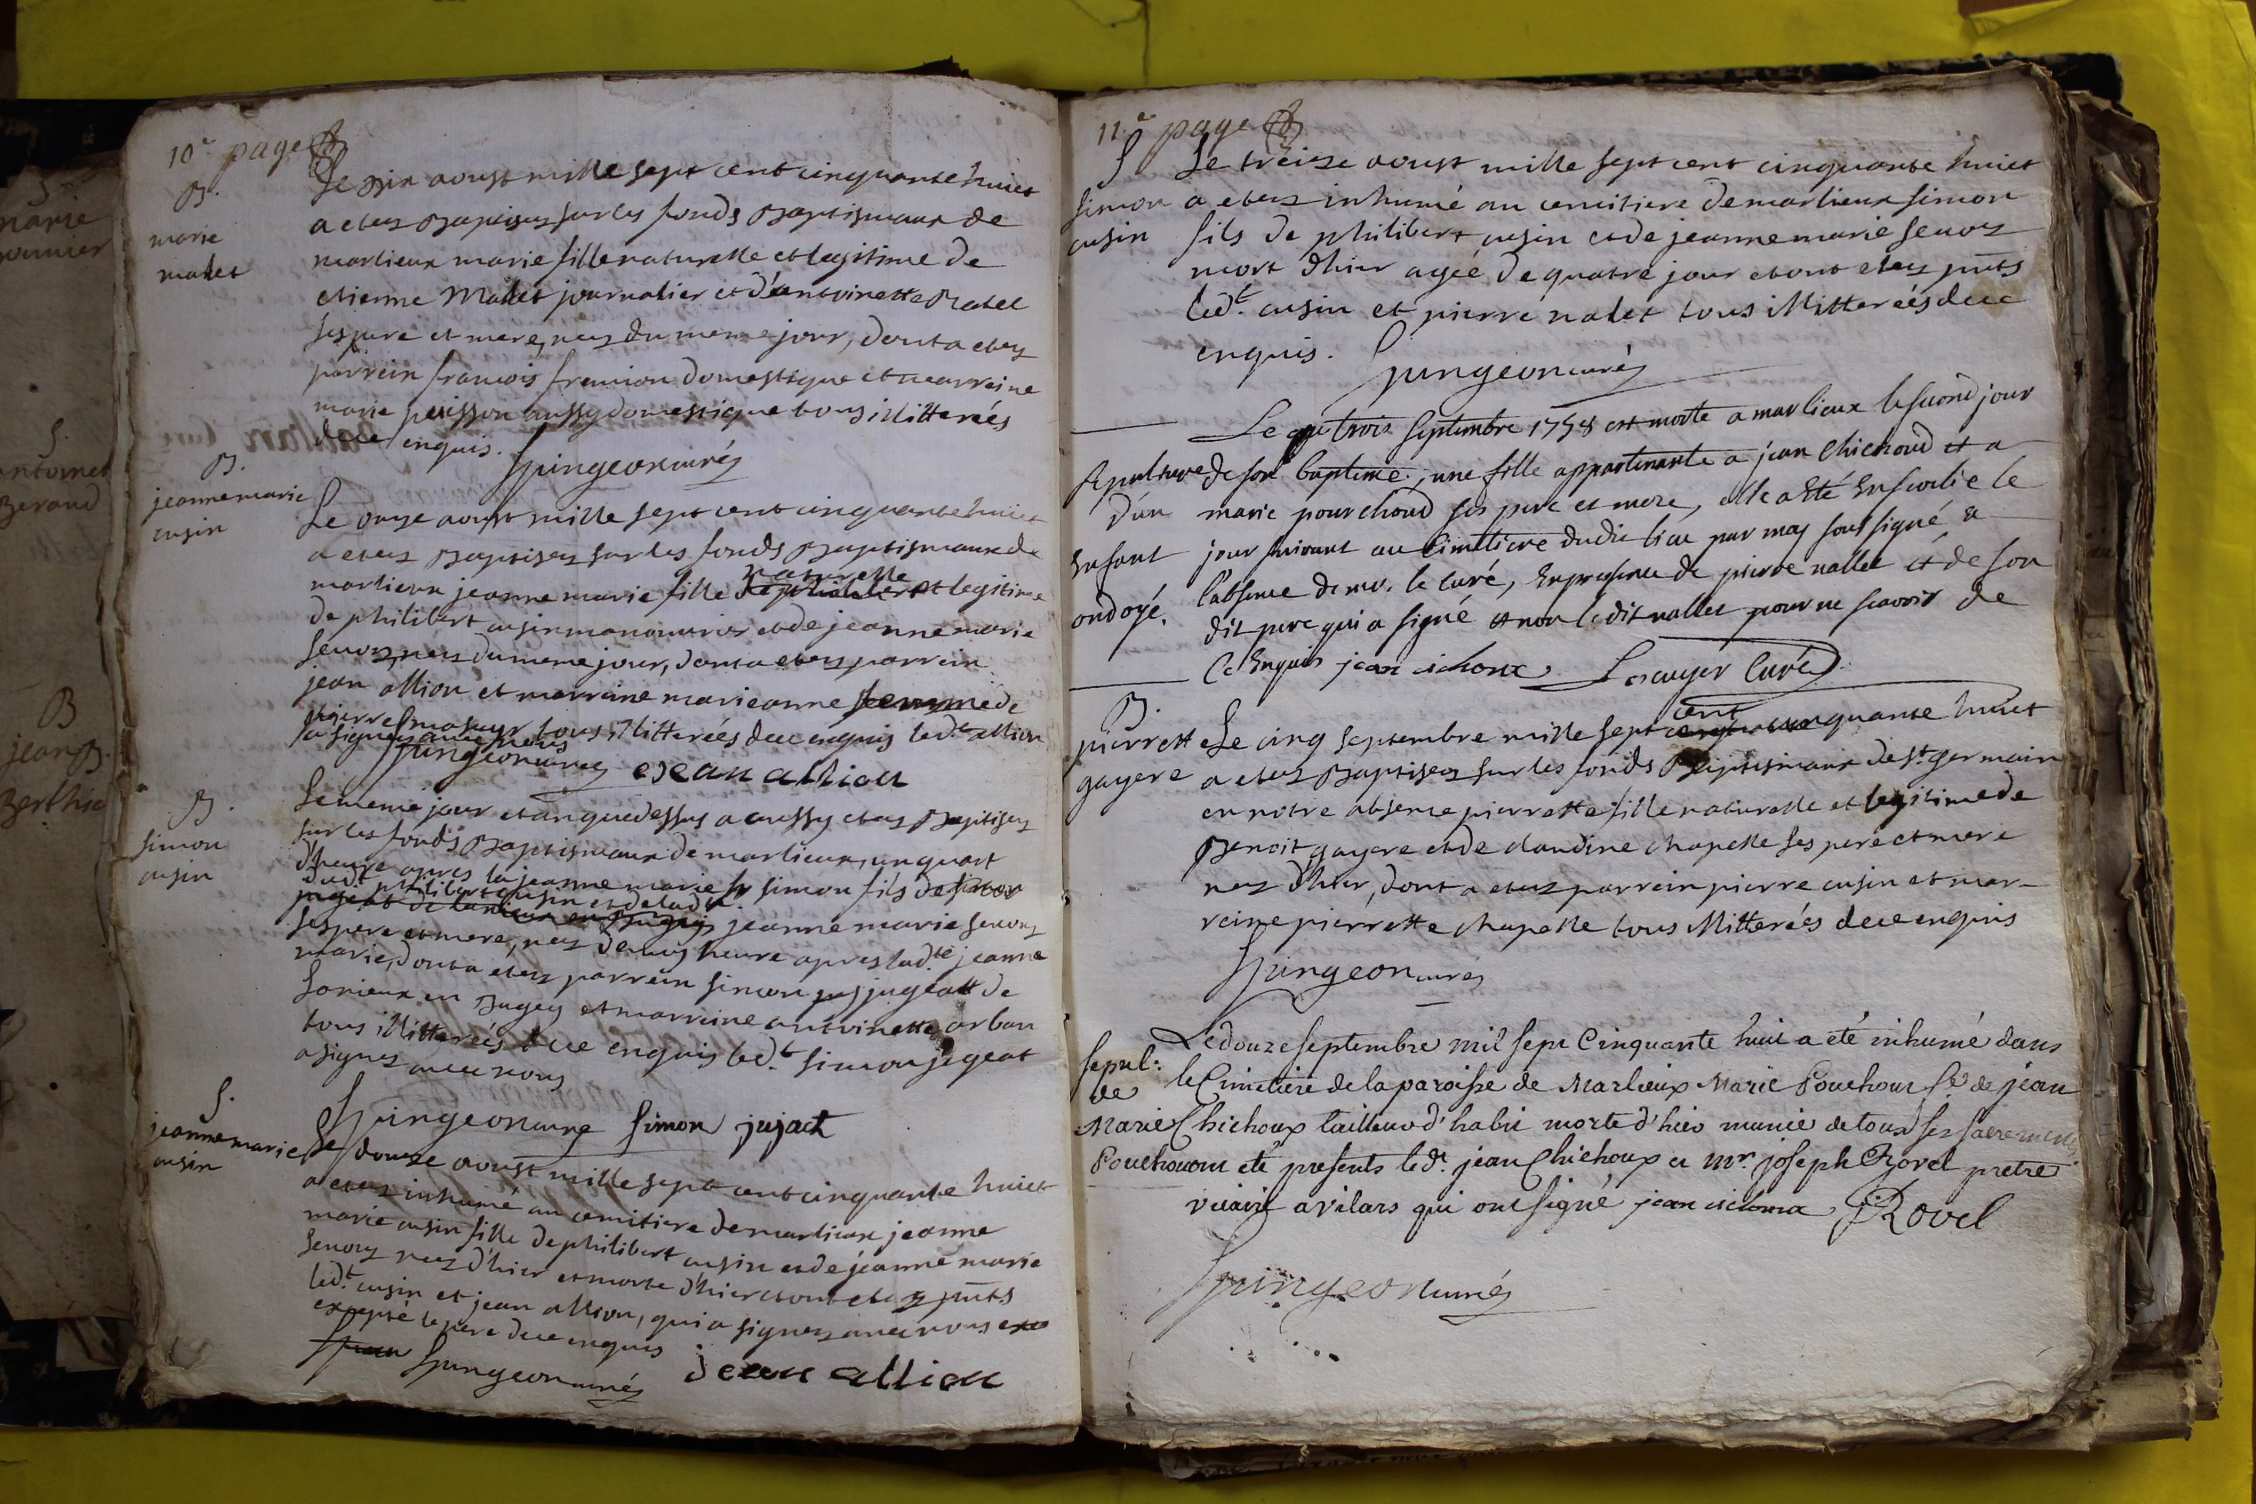 10e page
B.
marie
malet
Le dix aoust mille sept cent cinquante huict
a etez Baptisez sur les fonds Baptismaux de
marlieux marie fille naturelle et legitime de
etienne Malet journalier et d'antoinette Ratel
ses pere et mere, nez du meme jour, dont a etez
parrein francois fremion domestique et marreine
marie poisson aussy domestique tous illitterées
dece enquis. Spingeon curéz
B.
jeanne marie
cusin
Le onze aoust mille sept cent cinquante huict
a etez Baptisez sur les fonds Baptismaux de
marlieux jeanne marie fille naturelle et legitime
de philibert cusin manouvrier et de jeanne marie
sevoz, nez du meme jour, dont a etez parrein
jean allion et marreine marieanne femme de
pierre tous illitterées dece enquis ledt. allion
a signez avec nous
Spingeon curez jean allion
B.
simon
cusin
Le meme jour et an que dessus a aussy etez Baptisez
sur les fonds Baptismaux de marlieux, un quart
d'heure apres la jeanne marie simon fils de
dudt. philibert cusin et de ladte. jeanne marie sevoz
ses pere et mere, nez demy heure apres ladte. jeanne
marie, dont a étez parrein simon jugeatt de
Lonieux en Bugey et marreine antoinette arban
tous illitterées dece enquis ledt. simon jugeat
a signez avec nous
Spingeon cure simon jujact
S.
jeanne marie
cusin
Le douze aoust mille sept cent cinquante huict
a etez inhumé au cemitiere de marlieux jeanne
marie cusin fille de philibert cusin et de jeanne marie
sevoz nez d'hier et morte d'hier et ont etez pnts
ledt. cusin et jean allion, qui a signez avec nous
excepté le pere dece enquis
Spingeon curéz jean allion
11e page
S
simon
cusin
Le treize aoust mille sept cent cinquante huict
a etez inhumé au cemitiere de marlieux simon
fils de philibert cusin et de jeanne marie sevoz
mort d'hier agée de quatre jour et ont etez pnts
ledt. cusin et pierre nalet tous illitterées dece
enquis. Spingeon curéz
Sepulture
d'un
Enfant
ondoyé.
Le trois septembre 1758 est morte a marlieux le second jour
de son baptême, une fille appartenante a jean Chichoud et a
marie pourchoud ses pere et mere, elle a Eté Ensevelie le
jour suivant au Cimetiere dudit lieu par moy soussigné a
l'absence de mr. le Curé, En presence de pierre nallet et de son
dit pere qui a signé et non ledit nallet pour ne scavoir de
Ce Enquis jean cichoux Lescuyer Curé
B.
pierrette
gayere
Le cinq septembre mille sept cent cinquante huict
a etez Baptisez sur les fonds Baptismaux de st. germain
en nôtre absence pierrette fille naturelle et legitime de
Benoit gayere et de claudine chapelle ses pere et mere
nez d'hier, dont a etez parrein pierre cusin et mar-
reine pierrette chapelle tous illitterées dece enquis
Spingeon curéz
sepul:
de
Marie
Pouchoux
Le douze septembre mil sept Cinquante huit a eté inhumé dans
le Cimetiere de la paroisse de Marlieux Marie Pouchoux fe. de jean
Chichoux tailleur d'habit morte d'hier munie de tous ses sacrements
ont eté presents ledt. jean Chichoux et Mr. joseph Rovel pretre
vicaire a vilars qui ont signé jean cichoux JRovel
Spingeon curéz
S.
marie
S.
antoinet
Beraud
B
jean B.
Berthie